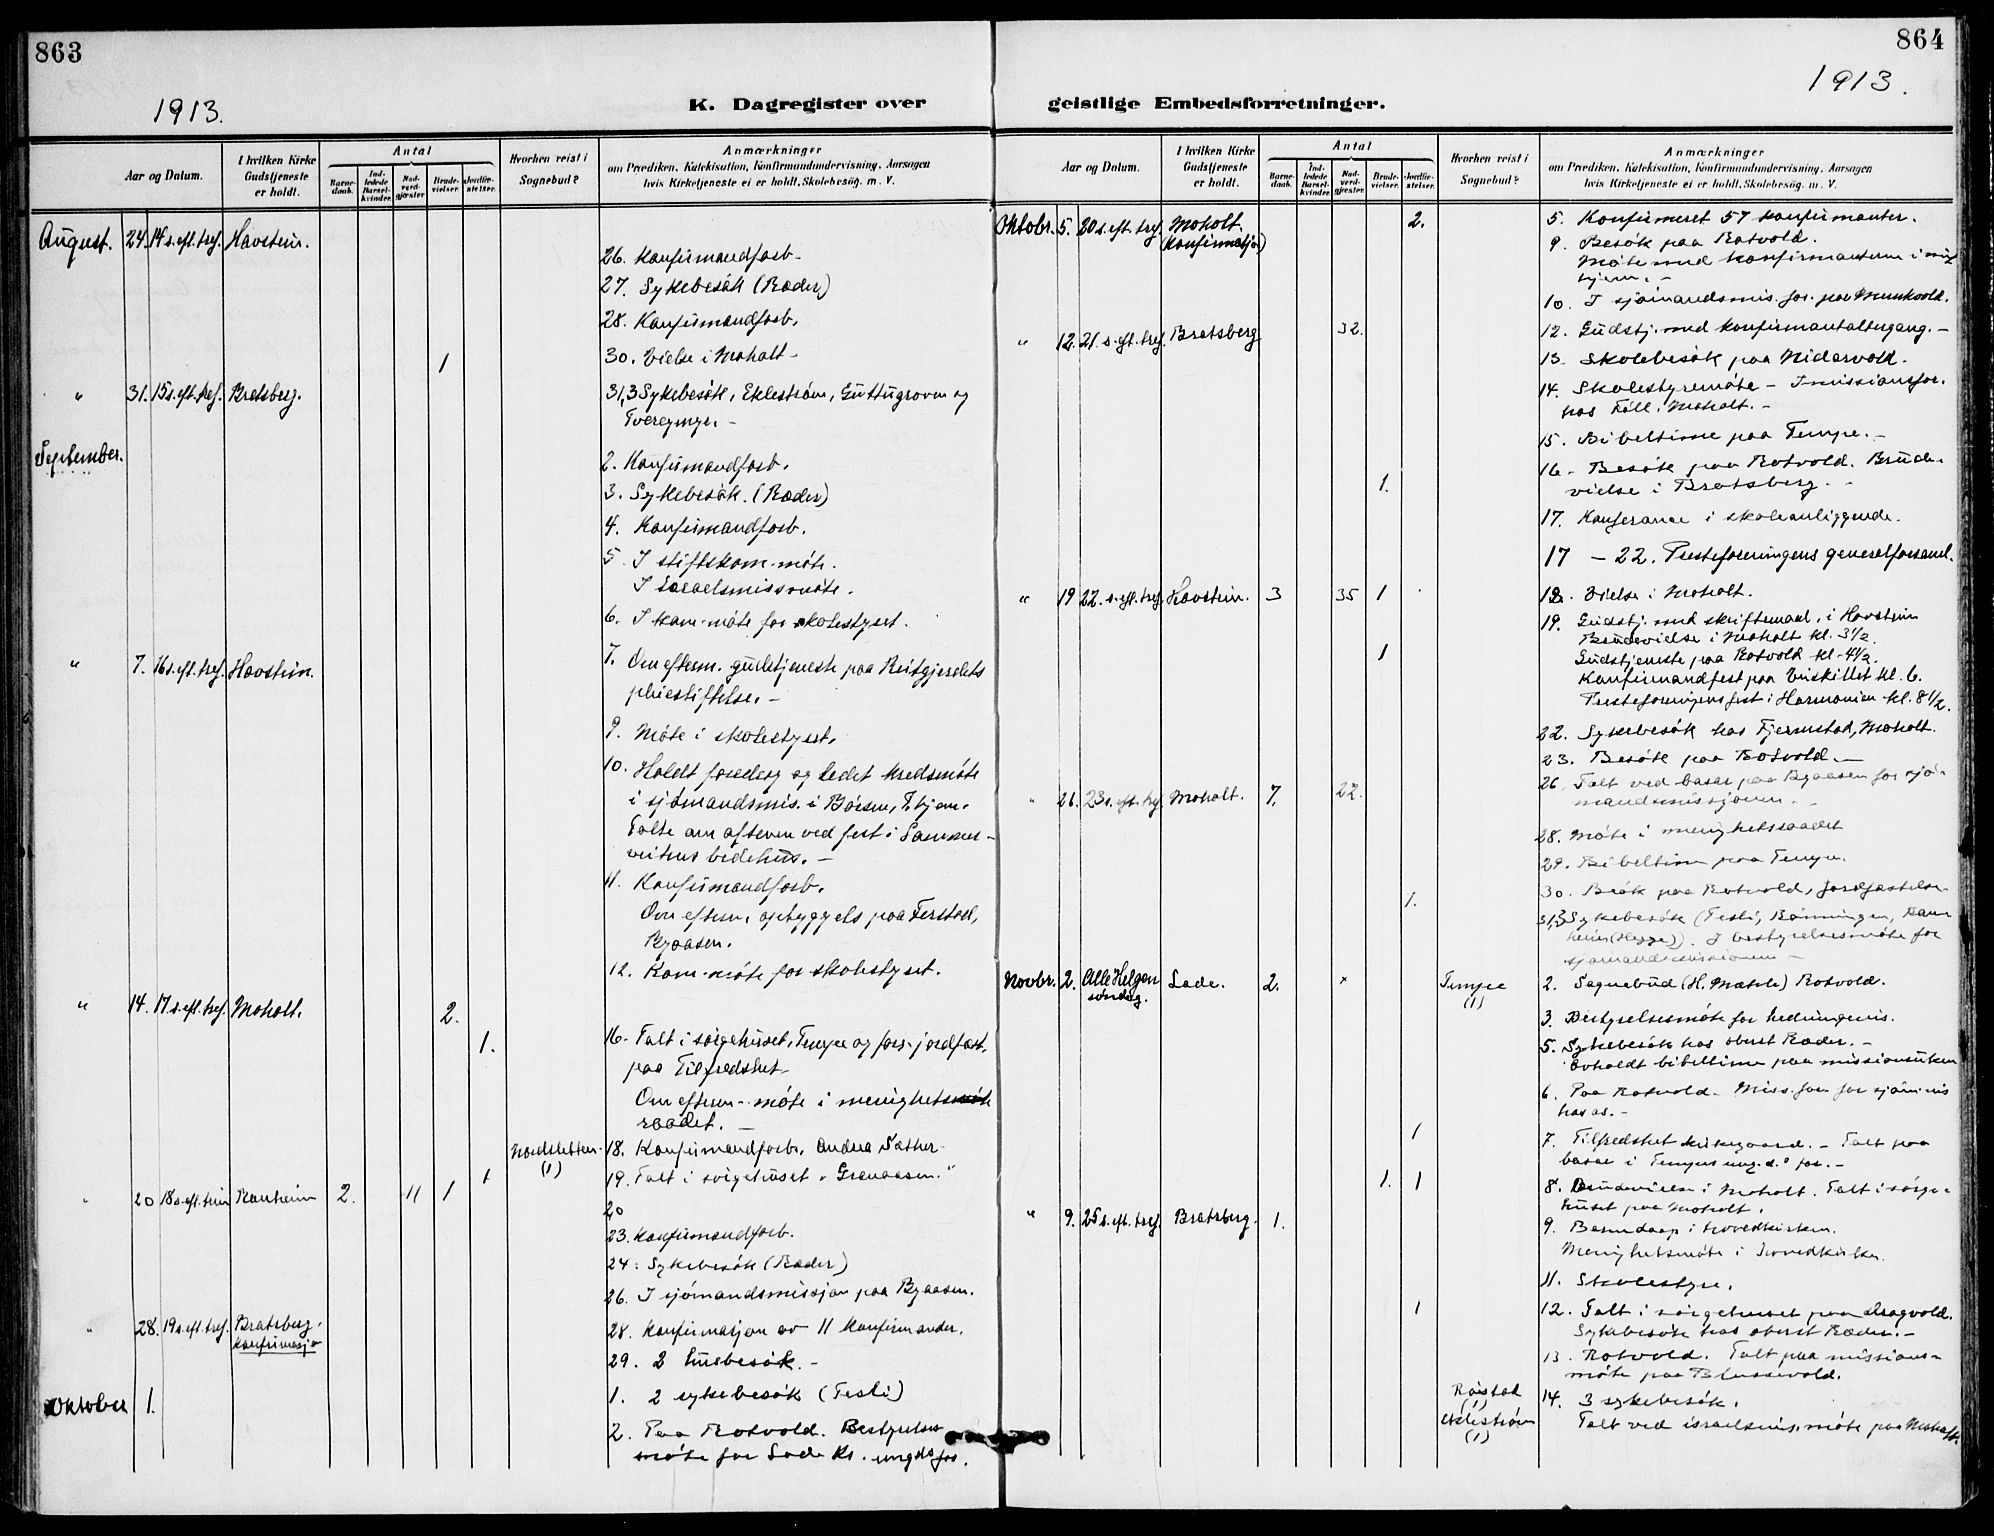 863
1913.
K. Dagregister over
Aar og Datum.
I hvilken Kirke Gudstjeneste er holdt.
Antal
Barnedaab.
Indledede Barselkvinder.
Nadverdgjæster.
Brudevielser.
Jordfæstelser.
Hvorhen reist i Sognebud?
Anmærkninger
om Prædiken, Katekisation, Konfirmandundervisning, Aarsagen
hvis Kirketjeneste ei er holdt, Skolebesög. m. V.
August. 24. 14 s. eft. tref. Havstein.
26. Konfirmandforb.
27. Sykebesök (Ræder)
28. Konfirmandforb.
1 30. Vielse i Moholt.
" 31. 15 s. eft. tref. Bratsberg. 31,3 Sykebesök, Eklestrøm, Guttugroven og
September.
2. Konfirmandforb.
3. Sykebesök. (Ræder)
4. Konfirmandforb.
5. I stiftskom. möte.
I Israelsmissmöte.
6. I kom. möte for skolestyret.
" 7. 16 s. eft. tref. Havstein. 7. Om efterm. gudstjeneste paa Reitgjerdets
pleiestiftelse. -
9. Möte i skolestyret.
10. Holdt foredrag og ledet kredsmöte
i sjömandsmis. i Börsen, T.hjem.
Talte om aftenen ved fest i
bedehus. -
11. Konfirmandforb.
Om efterm. opbyggels paa Ferstad,
Byaasen.
12. Kom. möte for skolestyret.
" 14. 17 s. eft. tref. Moholt. 2.
1. 16. Talt i sörgehuset, Tempe og forr. jordfæst.
paa Tilfredshet.
Om efterm. möte i menighets
raadet. -
(1) 18. Konfirmandforb. Andrea Sæther.
1 19. Talt i sörgehuset "Granaasen."
" 20 18 s. eft. trin Ranheim 2. 11 1
20
23. Konfirmandforb.
24. Sykebesök (Ræder)
26. I sjömandsmissjon paa Byaasen.
" 28. 19 s. eft. tref. Bratsberg.
Konfirmasjon
28. Konfirmasjon av 11 konfirmander.
29. 2 husbesök. -
Oktober 1. 1. 2 sykebesök (Tesli)
2. Paa Rotvold. Bestyrelses
möte for Lade Ks. ungd.s for.
864
1913.
geistlige Embedsforretninger.
Aar og Datum.
I hvilken Kirke Gudstjeneste er holdt.
Antal
Barnedaab.
Indledede Barselkvinder.
Nadverdgjæster.
Brudevielser.
Jordfæstelser.
Hvorhen reist i Sognebud?
Anmærkninger
om Prædiken, Katekisation, Konfirmandundervisning, Aarsagen
hvis Kirketjeneste ei er holdt, Skolebesög. m. V.
Oktobr. 5. 20 s. eft. tref. Moholt. 2. 5. Konfirmeret 57 konfirmanter.
(Konfirmasjon)
9. Besök paa Rotvold.
Möte med konfirmanterne i mit
hjem. -
10. I sjömandsmis. for. paa Munkvold.
" 12. 21. s. eft. tref. Bratsberg 32. 12. Gudstj. med konfirmantaltergang. -
13. Skolebesök paa Nidarvold.
14. Skolestyremöte - I missionsfor.
hosFöll. Moholt. -
15. Bibeltime paa Tempe. -
16. Besök paa Rotvold. Brude-
1. vielse i Bratsberg. -
17. Konferanse i skoleanliggende.
17 - 22. Presteforeningens generalforsaml.
" 19 22. s. eft. tref. Havstein. 3 35 1 18. Vielse i Moholt.
19. Gudstj. med skriftemaal, i Havstein
1 Brudevielse i Moholt kl. 3 1/2.
Gudstjeneste paa Rotvold kl. 4 1/2.
Konfirmandfest paa kl. 6.
Presteforeningens fest i Harmonien kl. 8 1/2.
22. Sykebesök hos Fjermstad, Moholt.
23. Besök paa Rotvold -
" 26. 23 s. eft. tref. Moholt. 7. 22. 26. Talt ved basar paa Byaasen for sjö-
mandsmissjonen. -
28. Möte i menighetsraadet
29. Bibeltime paa Tempe.
1. 30. Besök paa Rotvold, Jordfæstelse
31,3 Sykebesök (Tesli, Rönningen, Ran-
heim (Hegge)). I bestyrelsesmöte for
sjömandsmissionen -
Novbr. 2. Alle Helgen
söndag. Lade. 2. x Tempe
(1) 2. Sognebud (H. Mæhle) Rotvold.
3. Bestyrelsesmöte for hedningemis.
5. Sykebesök hos oberst Ræder. -
Avholdt bibeltime paa missionsuken
6. Paa Rotvold - Miss. for. for sjöm. mis
hos os. -
1 7. Tilfredshet kirkegaard. - Talt paa
basar i Tempes ung.d. for. -
1. 1 8. Brudevielse i Moholt. Talt i sörge-
huset paa Moholt.
" 9. 25 s. eft. tref. Bratsberg. 1. 9. Barnedaap i hovedkirken.
Menighetsmöte i hovedkirken.
11. Skolestyre.
1 12. Talt i sörgehuset paa Dragvold.
Sykebesök hos oberst Ræder. -
13. Rotvold. Talt paa missions-
möte paa Blussuvold.
(1) 14. 3 sykebesök.
Eklestrøm
(1) Talt ved israelsmis. möte paa Moholt.